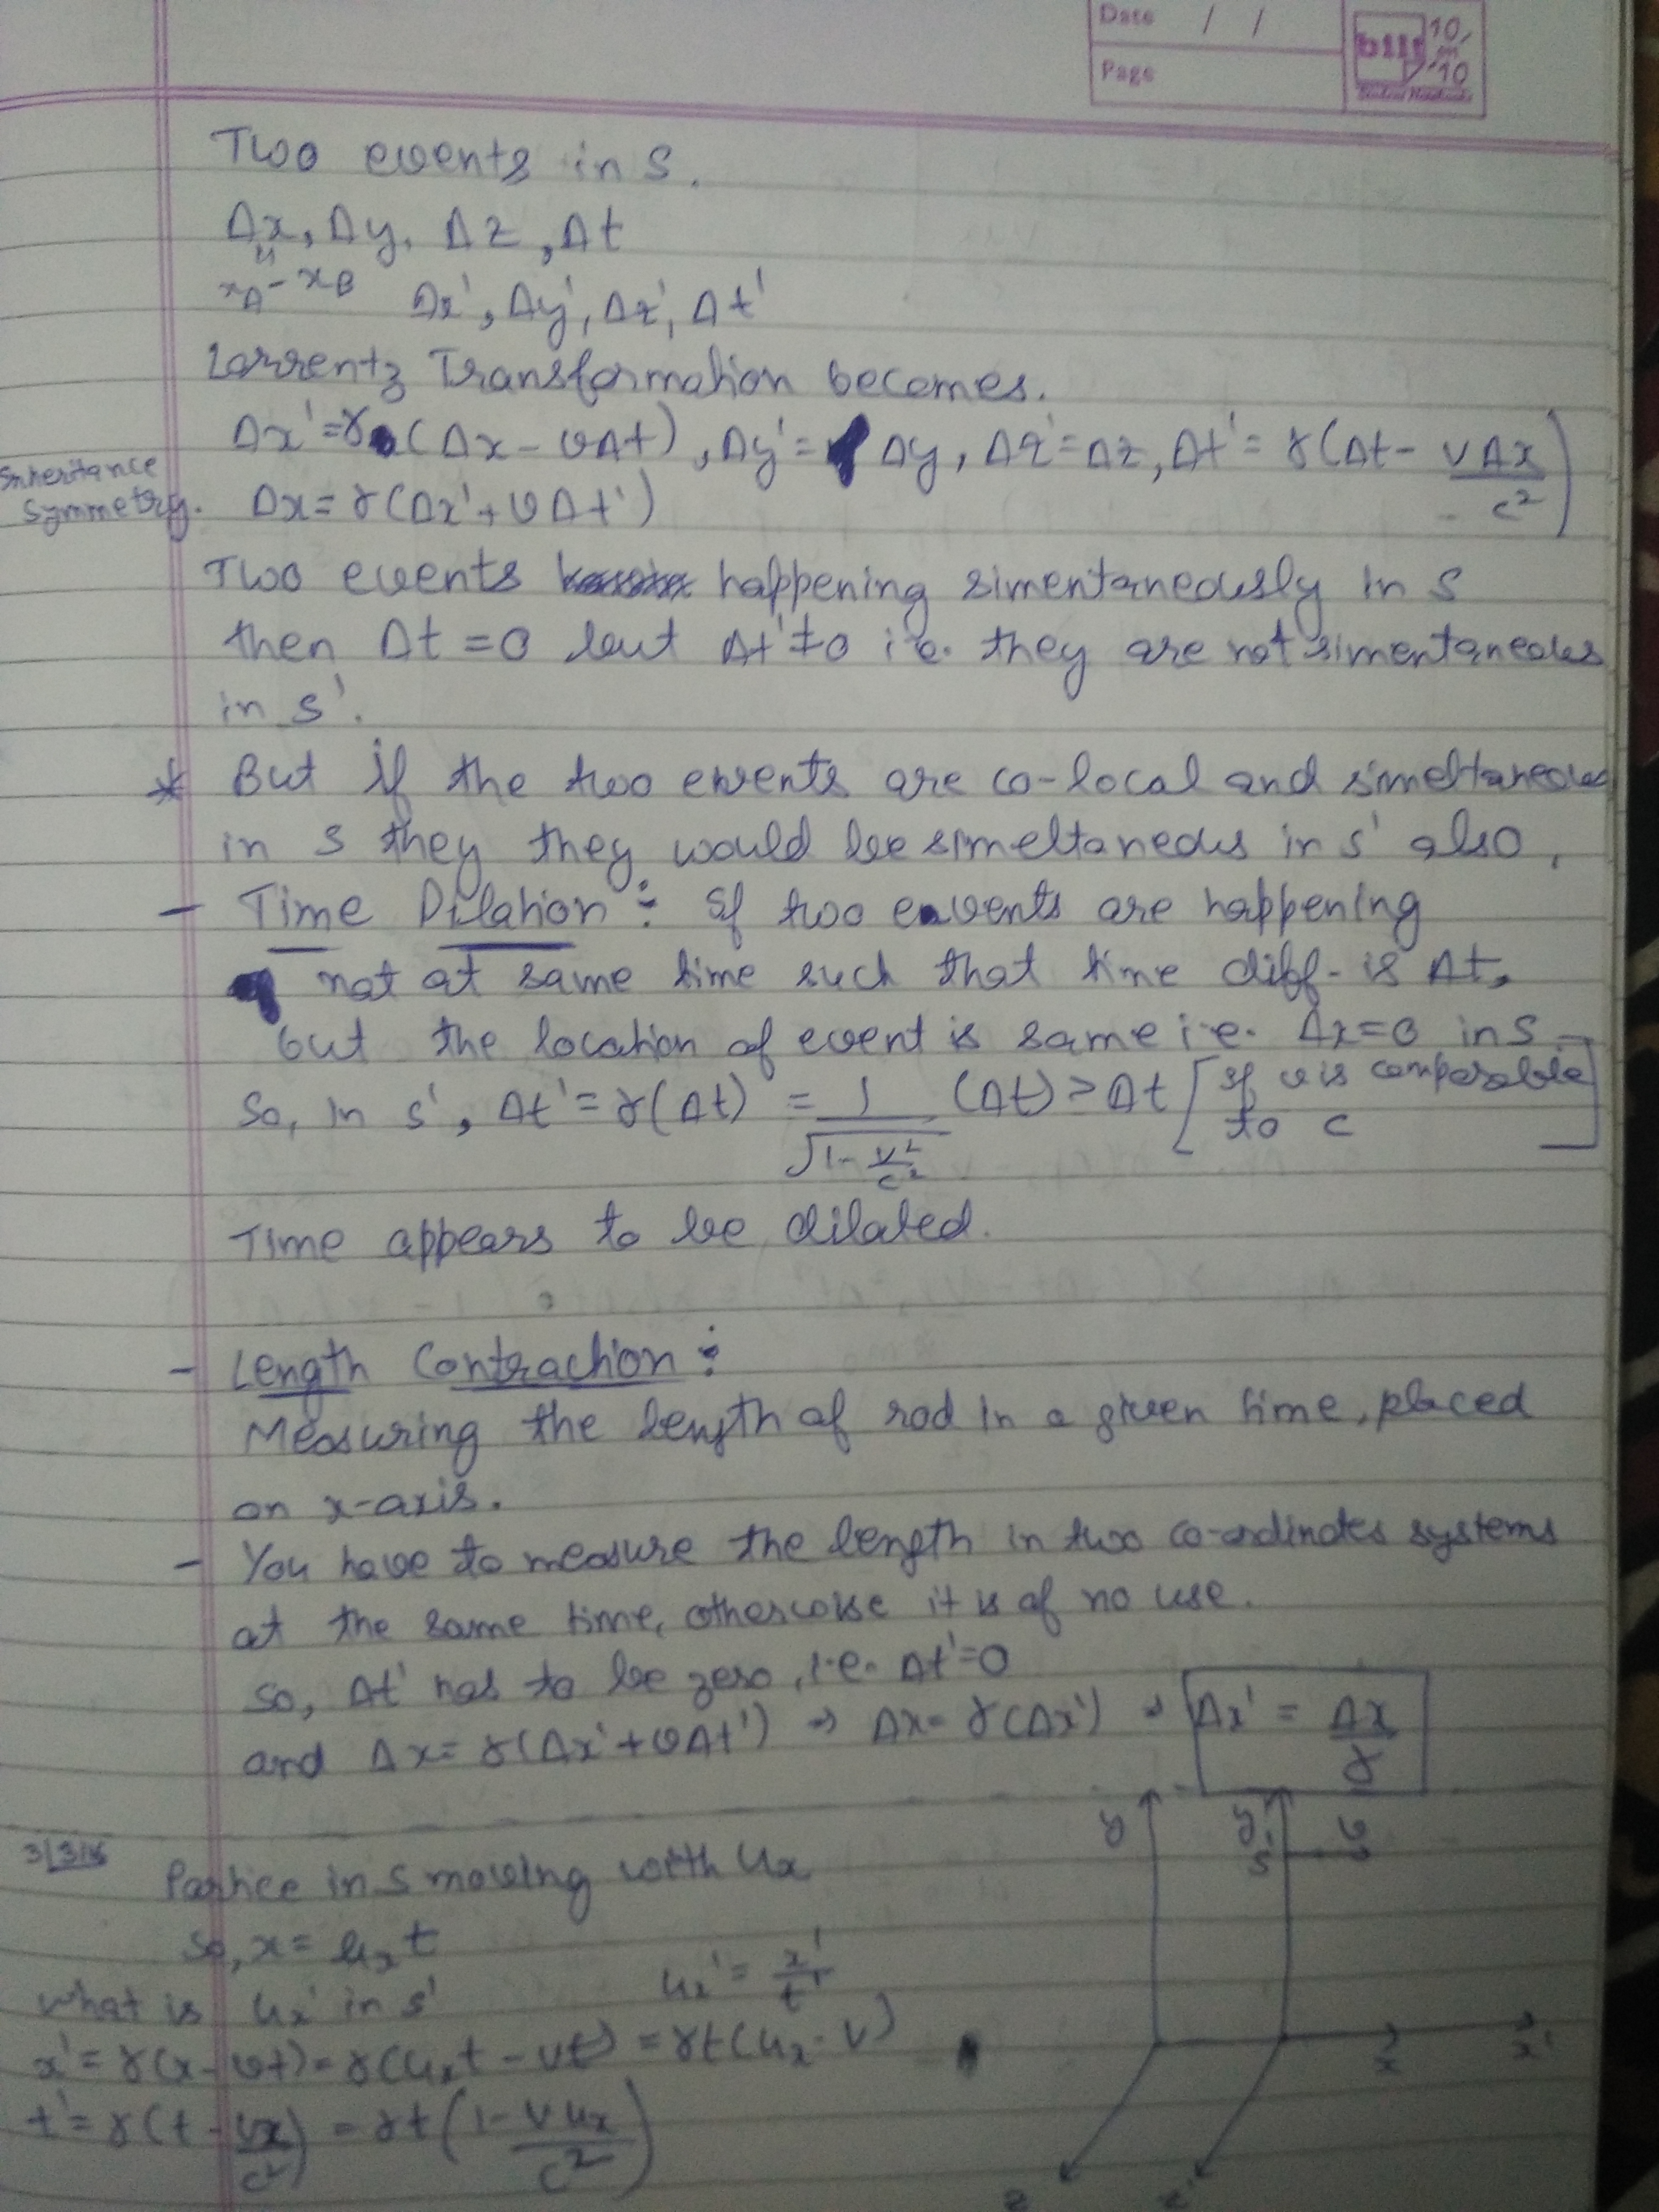 Date / /
Page
bilt 10 on 10
Student Notebooks
Two events in S.
Δx, Δy, Δz, Δt
"
xA - xB Δx', Δy', Δz', Δt'
Lorrentz Transformation becomes.
Δx' = γ (Δx - vΔt), Δy' = Δy, Δz' = Δz, Δt' = γ(Δt - vΔx/c²)
Inheritance
Symmetry. Δx = γ(Δx' + vΔt')
Two events happening simentaneously in S
then Δt = 0 but Δt' ≠ 0 i.e. they are not simentaneous
in s'.
* But if the two events are co-local and simeltaneous
in S they they would be simeltaneous in s' also.
- Time Dilation : If two events are happening
not at same time such that time diff- is Δt,
but the location of event is same i.e. Δx = 0 in S.
So, in s', Δt' = γ(Δt) = 1/√(1 - v²/c²) (Δt) > Δt [If v is comparable
to c]
Time appears to be dilated.
- Length Contraction :
Measuring the length of rod in a given time, placed
on x-axis.
- You have to measure the length in two co-ordinates systems
at the same time, otherwise it is of no use.
so, Δt' has to be zero, i.e. Δt' = 0
and Δx = γ(Δx' + vΔt') ⇒ Δx = γ(Δx') ⇒ Δx' = Δx/γ
3/3/16
y y' v
s'
Partice in S moving with ux
So, x = ux t
What is ux' in s' ux' = x'/t'
x' = γ(x - vt) = γ(uxt - vt) = γt(ux - v)
x x'
t' = γ(t - vx/c²) = γt(1 - vux/c²)
z z'